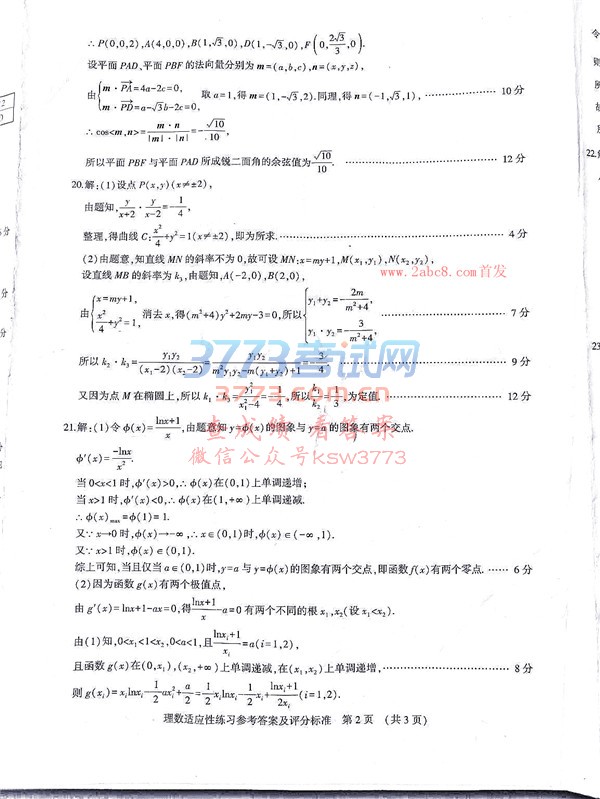 ∴P(0,0,2),A(4,0,0),B(1,√3,0),D(1,-√3,0),F(0,2√3/3,0).
设平面PAD、平面PBF的法向量分别为m=(a,b,c),n=(x,y,z),
由{m·PA=4a-2c=0, m·PD=a-√3b-2c=0, 取a=1,得m=(1,-√3,2).同理,得n=(-1,√3,1), 10分
∴cos<m,n>=m·n/|m|·|n|=-√10/10,
所以平面PBF与平面PAD所成锐二面角的余弦值为√10/10. 12分
20.解:(1)设点P(x,y)(x≠±2),
由题知,y/(x+2)·y/(x-2)=-1/4,
整理,得曲线C:x²/4+y²=1(x≠±2),即为所求. 4分
(2)由题意,知直线MN的斜率不为0,故可设MN:x=my+1,M(x₁,y₁),N(x₂,y₂),
设直线MB的斜率为k₃,由题知,A(-2,0),B(2,0),
www.2abc8.com首发
由{x=my+1, x²/4+y²=1, 消去x,得(m²+4)y²+2my-3=0,所以{y₁+y₂=-2m/(m²+4), y₁·y₂=-3/(m²+4), 7分
所以k₂·k₃=y₁y₂/((x₁-2)(x₂-2))=y₁y₂/(m²y₁y₂-m(y₁+y₂)+1)=-3/4 9分
3773考试网
又因为点M在椭圆上,所以k₁·k₃=y₁²/(x₁²-4)=-1/4,所以k₁/k₂=1/3为定值. 12分
3773.com.cn
21.解:(1)令φ(x)=(lnx+1)/x,由题意知y=φ(x)的图象与y=a的图象有两个交点.
查成绩 看答案
φ′(x)=-lnx/x².
微信公众号ksw3773
当0<x<1时,φ′(x)>0,∴φ(x)在(0,1)上单调递增;
当x>1时,φ′(x)<0,∴φ(x)在(1,+∞)上单调递减.
∴φ(x)max=φ(1)=1.
又∵x→0时,φ(x)→-∞,∴x∈(0,1)时,φ(x)∈(-∞,1).
又∵x>1时,φ(x)∈(0,1).
综上可知,当且仅当a∈(0,1)时,y=a与y=φ(x)的图象有两个交点,即函数f(x)有两个零点. 6分
(2)因为函数g(x)有两个极值点,
由g′(x)=lnx+1-ax=0,得(lnx+1)/x-a=0有两个不同的根x₁,x₂(设x₁<x₂).
由(1)知,0<x₁<1<x₂,0<a<1,且(lnxᵢ+1)/xᵢ=a(i=1,2),
且函数g(x)在(0,x₁),(x₂,+∞)上单调递减,在(x₁,x₂)上单调递增, 8分
则g(xᵢ)=xᵢlnxᵢ-1/2axᵢ²+a/2=1/2xᵢlnxᵢ-1/2xᵢ+(lnxᵢ+1)/2xᵢ(i=1,2).
理数适应性练习参考答案及评分标准 第2页 (共3页)